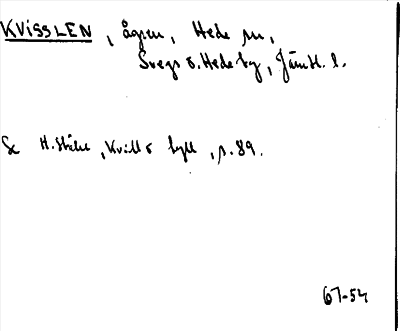 KVISSLEN, ågren, Hede sn,
Svegs o. Hede tg, Jämtl. l.
Se H. Ståhl, Kvill o tyll, s. 89.
67-54